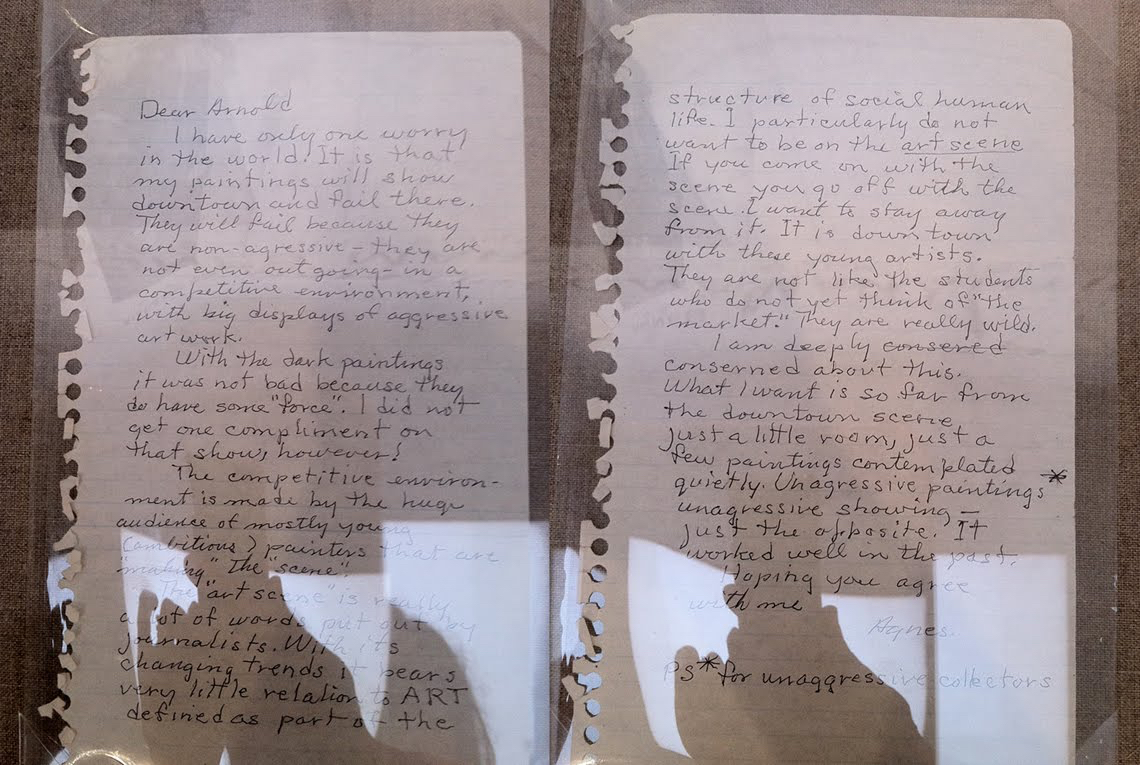 Dear Arnold
I have only one worry
in the world! It is that
my paintings will show
downtown and fail there.
They will fail because they
are non-agressive – they are
not even outgoing – in a
competitive environment,
with big displays of aggressive
art work.
With the dark paintings
it was not bad because they
do have some "force". I did not
get one compliment on
that show, however!
The competitive environ-
ment is made by the huge
audience of mostly young
(ambitious) painters that are
making "the "scene".
The "art scene" is really
a lot of words put out by
journalists. With its
changing trends it bears
very little relation to ART
defined as part of the
structure of social human
life. I particularly do not
want to be on the art scene
If you come on with the
scene you go off with the
scene. I want to stay away
from it. It is down town
with these young artists.
They are not like the students
who do not yet think of "the
market." They are really wild.
I am deeply consered
conserned about this.
What I want is so far from
the downtown scene,
just a little room, just a
few paintings contemplated
quietly. Unagressive paintings *
unagressive showing –
just the opposite. It
worked well in the past.
Hoping you agree
with me
Agnes.
PS * for unaggressive collectors